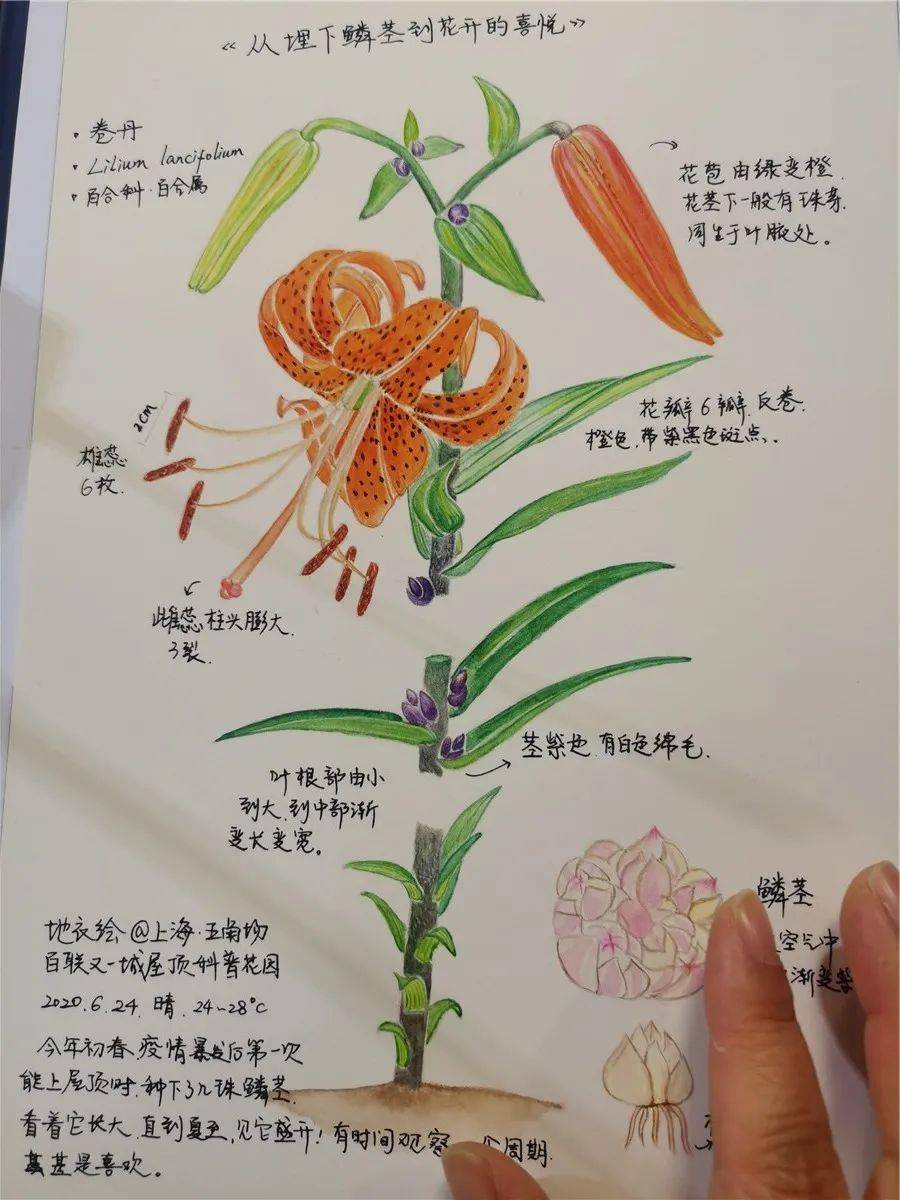 《从埋下鳞茎到花开的喜悦》
· 卷丹
· Lilium lancifolium
· 百合科·百合属
花苞由绿变橙.
花茎下一般有珠芽.
同生于叶腋处。
花瓣6瓣.反卷.
橙色,带紫黑色斑点.
2cm
雄蕊
6枚.
雌蕊,柱头膨大.
3裂.
茎紫色,有白色绵毛.
叶根部由小
到大,到中部渐
变长变宽。
鳞茎
空气中
渐变紫
地衣绘@上海·五角场
百联又一城屋顶科普花园
2020.6.24. 晴. 24~28°C
今年初春,疫情暴发后第一次
能上屋顶时,种下了几珠鳞茎.
看着它长大,直到夏至,见它盛开!有时间观察 个周期.
甚是喜欢。